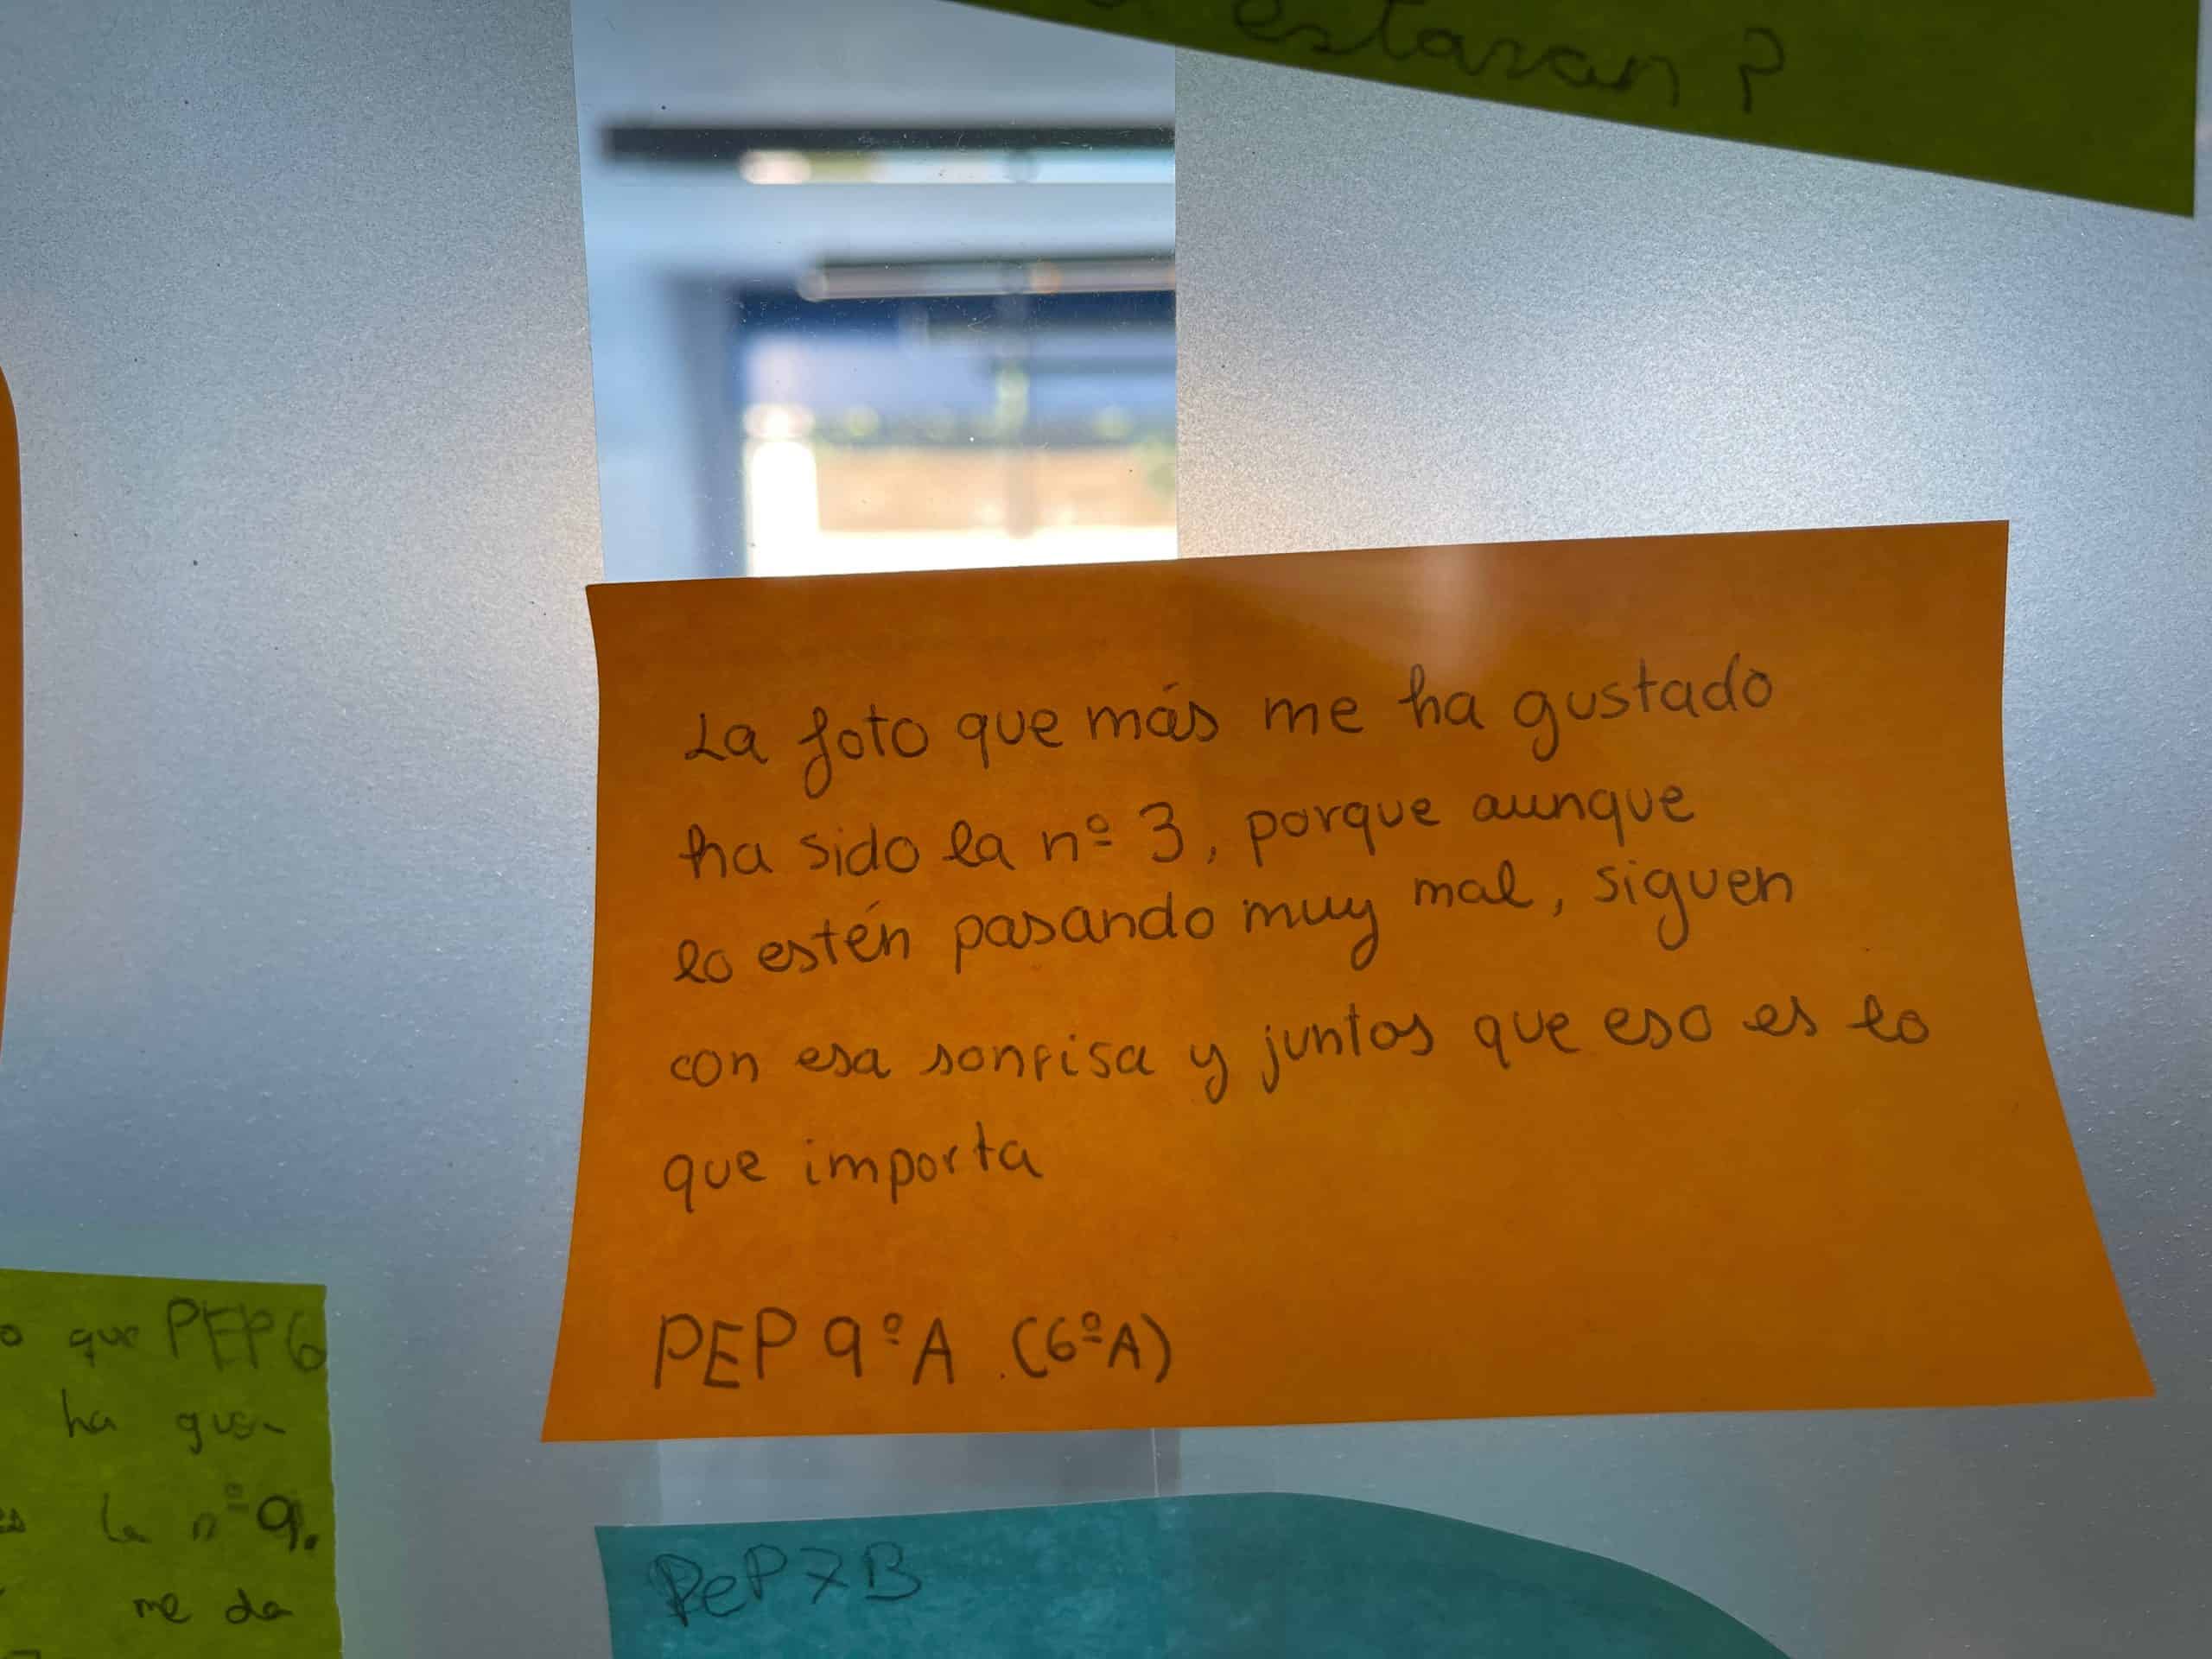 estaran?
La foto que más me ha gustado
ha sido la nº 3, porque aunque
lo estén pasando muy mal, siguen
con esa sonrisa y juntos que eso es lo
que importa
PEP 9ºA. (6ºA)
o que PEP6
ha gus-
la nº 9.
me da
PeP7B